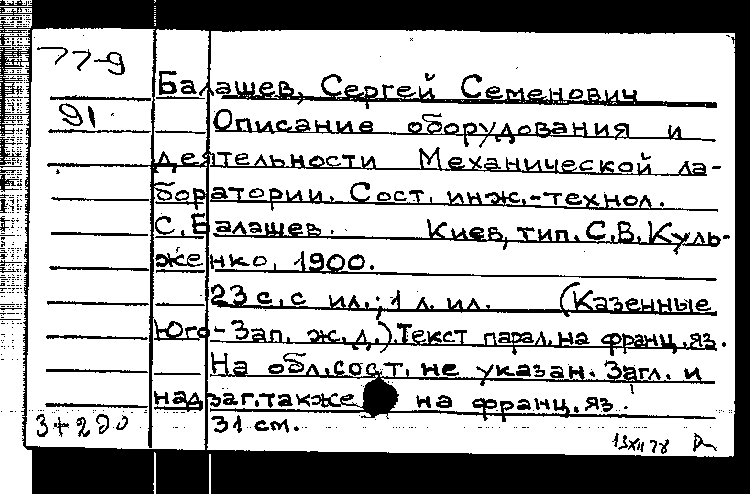 77-9
Балашев, Сергей Семенович
91
Описание оборудования и
деятельности Механической ла-
боратории. Сост. инж.-технол.
С. Балашев. Киев, тип. С.В. Куль-
женко, 1900.
23 с. с ил.; 1 л. ил. (Казенные
Юго-Зап. ж.д.). Текст парал. на франц. яз.
На обл. сост. не указан. Загл. и
надзаг. также на франц. яз.
31 см.
3+290
13 XII 78